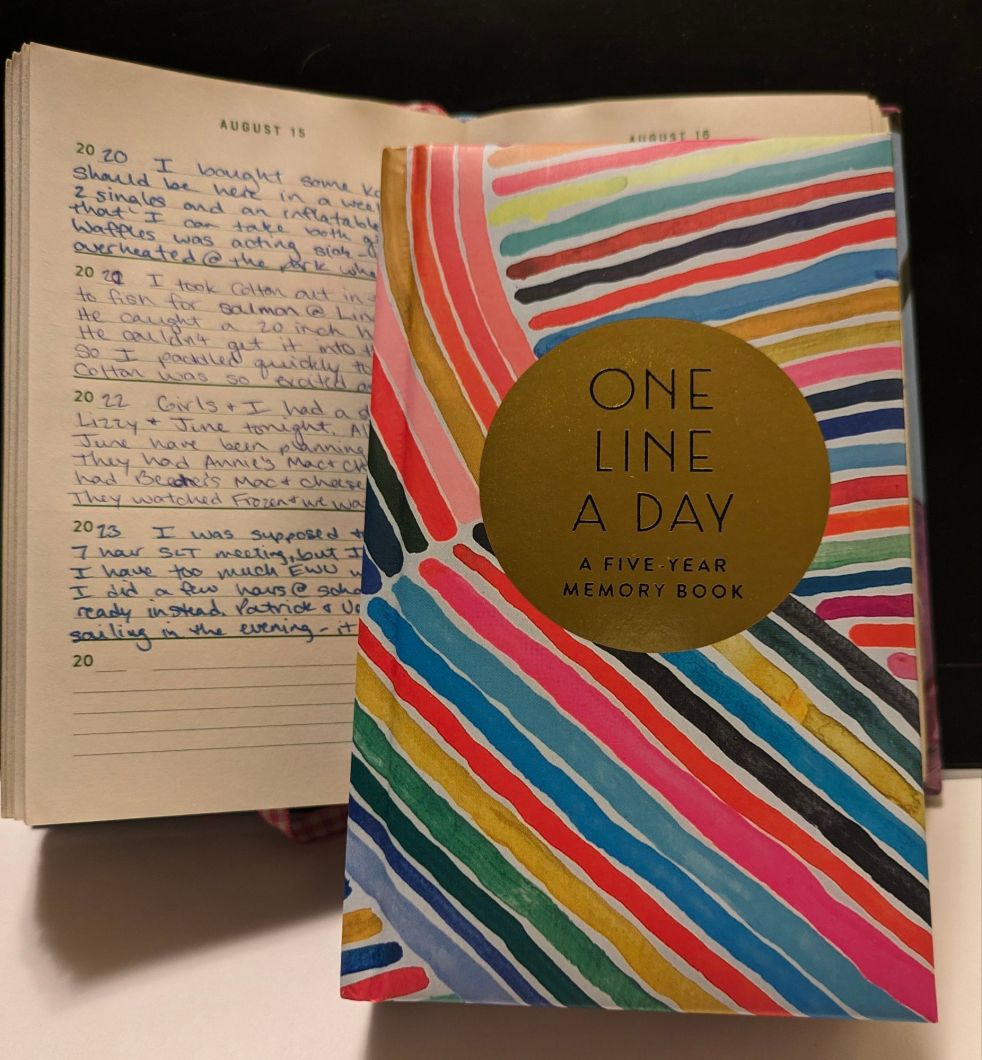 AUGUST 15
20 20 I bought some
should be here in a week
2 singles and an inflatable
that I can take both
Waffles was acting sick
overheated @ the park
20 21 I took Cotton out in
to fish for salmon @
He caught a 20 inch
He couldn't get it into
So I paddled quickly to
Cotton was so excited
20 22 Girls + I had a
Lizzy + June tonight.
June have been planning
They had Annie's Mac + ch
had Beecher's Mac + cheese
They watched Frozen + we wa
20 23 I was supposed
7 hour SLT meeting, but I
I have too much EWU
I did a few hours @
ready instead. Patrick +
sailing in the evening - it
20
AUGUST 16
ONE
LINE
A DAY
A FIVE-YEAR
MEMORY BOOK